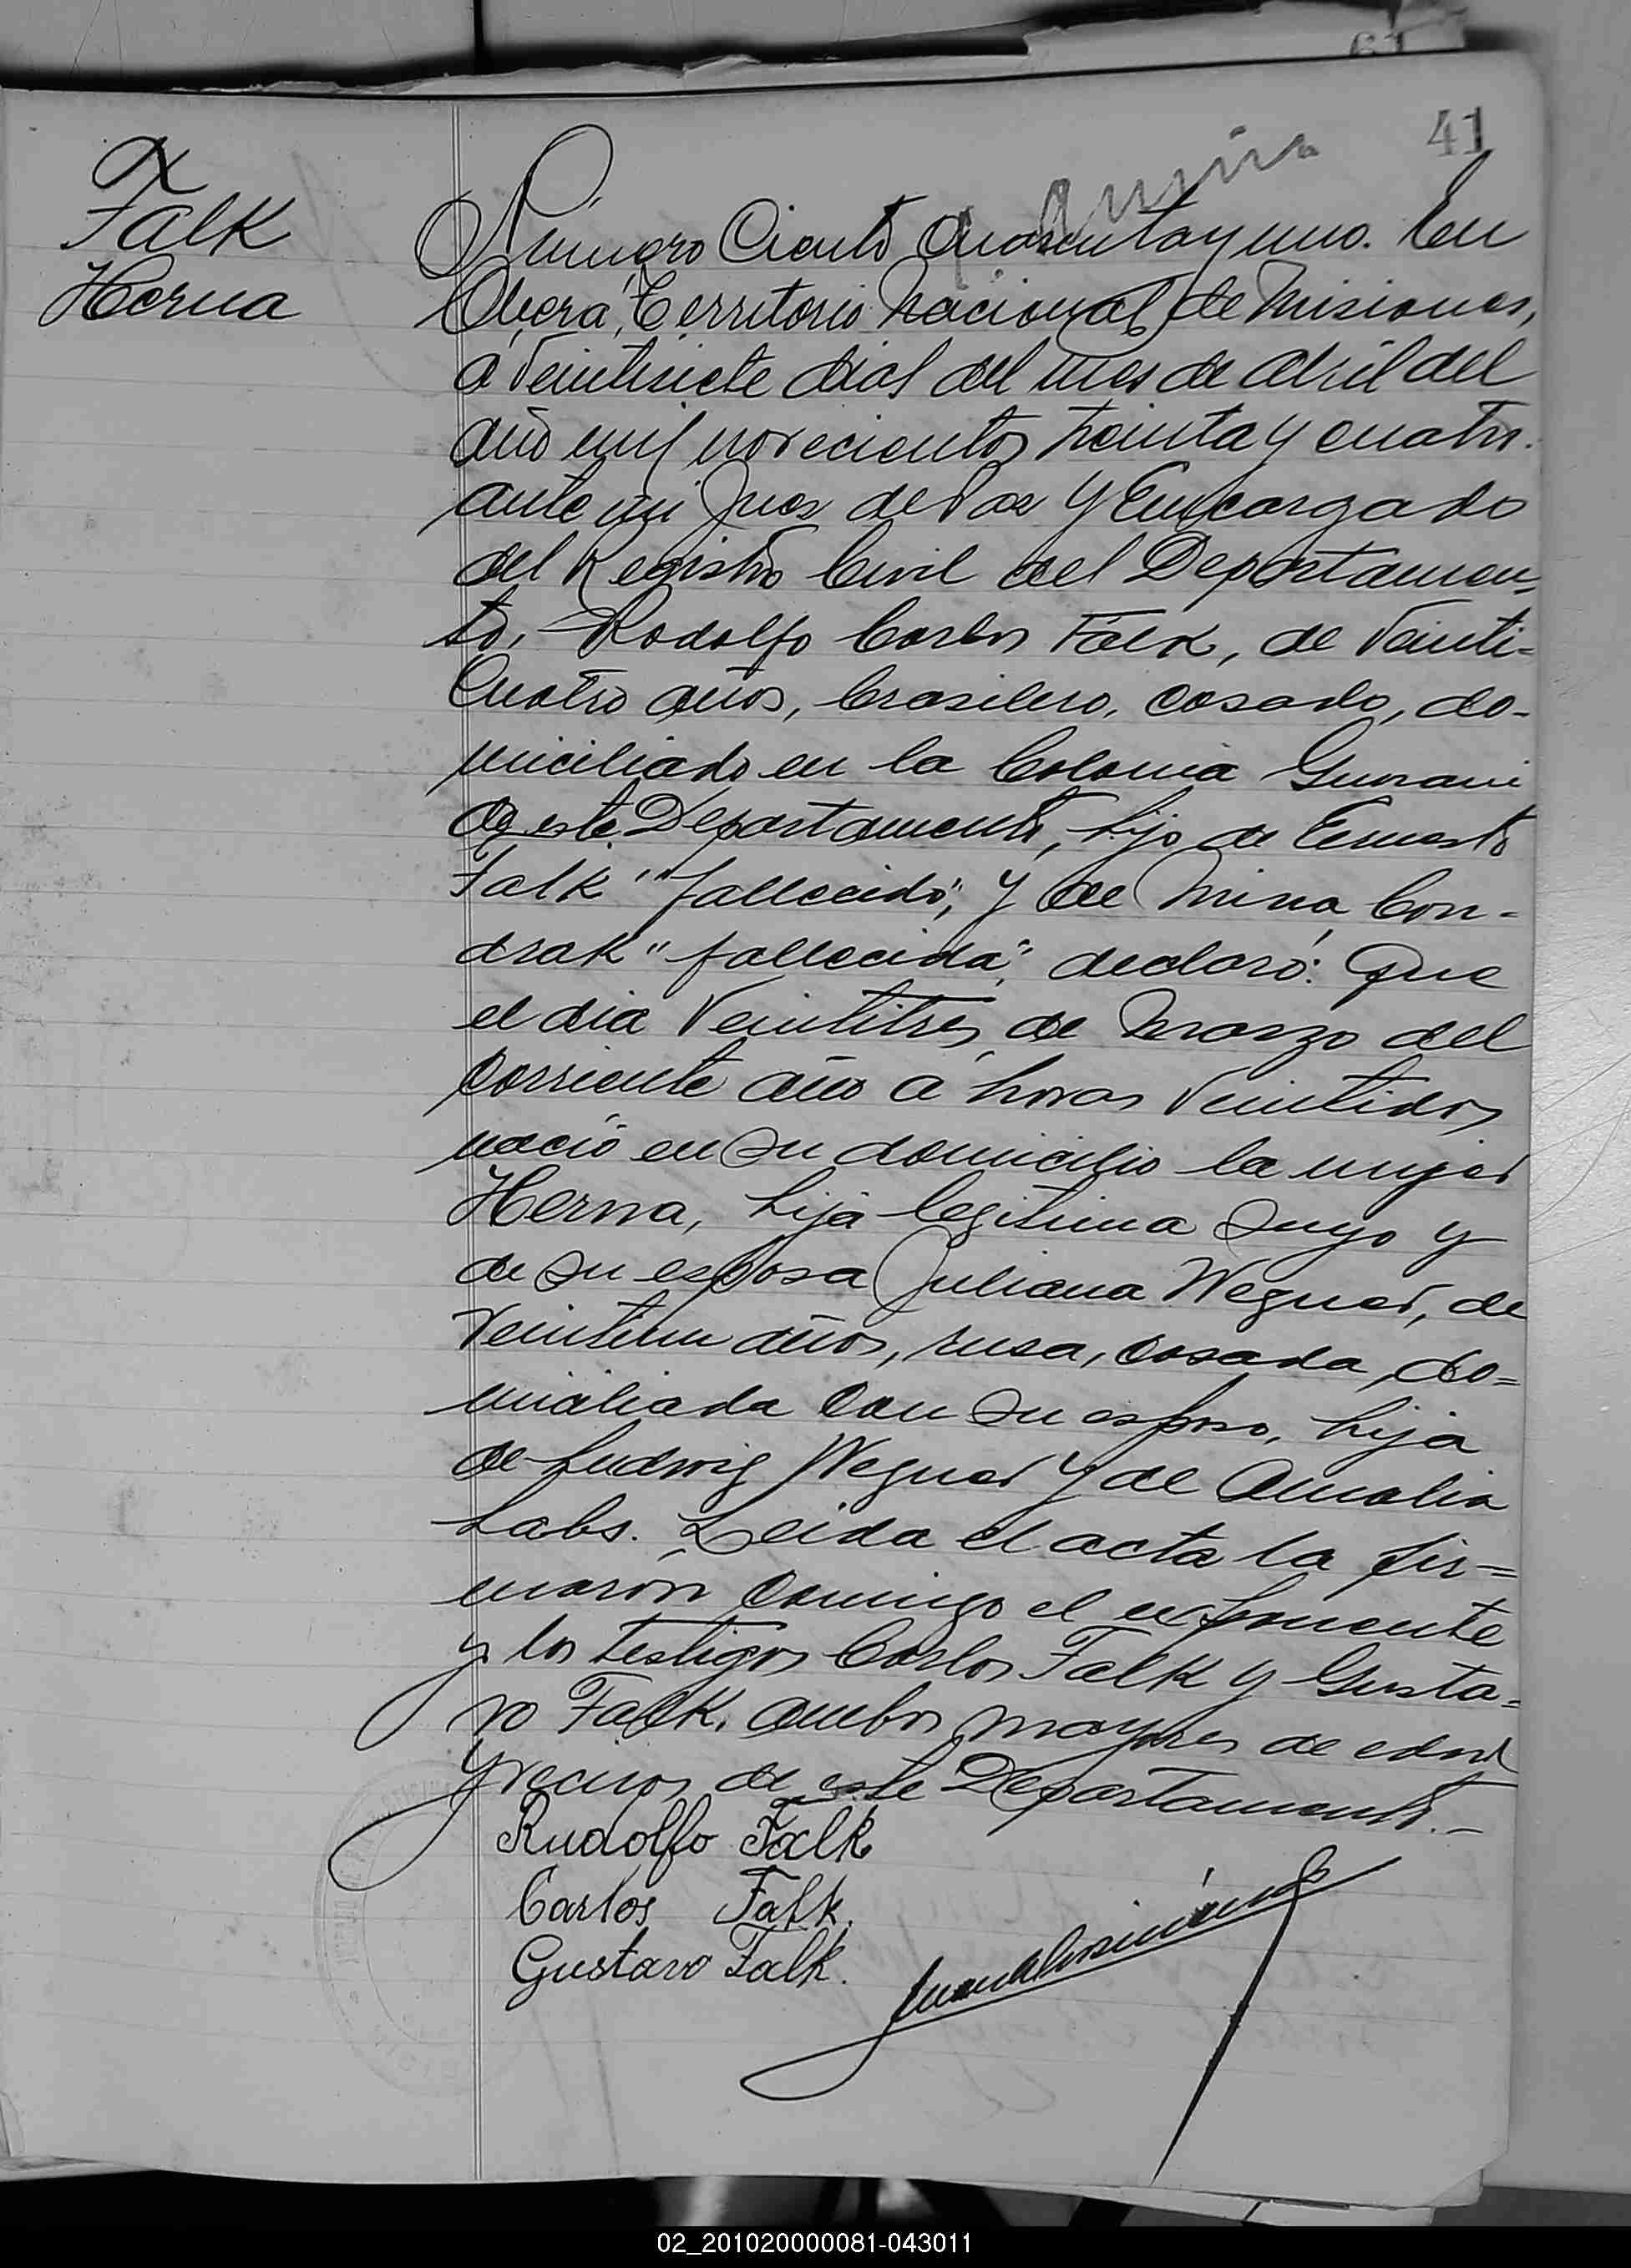 41
Falk
Herna
Número Ciento cuarenta y uno. En
Oberá, Territorio Nacional de Misiones,
a veintisiete dias del mes de Abril del
año mil novecientos treinta y cuatro.
ante mi Juez de Paz y Encargado
del Registro Civil del Departamen-
to, Rodolfo Carlos Falk, de veinti-
cuatro años, brasilero, casado, do-
miciliado en la Colonia Guarani
de este Departamento, hijo de Ernesto
Falk "fallecido", y de Mina Con-
drak "fallecida", declaró: Que
el dia veintitres de Marzo del
corriente año a horas veintidos
nació en su domicilio la mujer
Herna, hija legitima suya y
de su esposa Juliana Wegner, de
veintiun años, rusa, casada, do=
miciliada con su esposo, hija
de Ludwig Wegner y de Amalia
Labs. Leida el acta la fir=
maron conmigo el exponente
y los testigos Carlos Falk y Gusta=
vo Falk. ambos mayores de edad
y vecinos de este Departamento.-
Rudolfo Falk
Carlos Falk.
Gustavo Falk.
02_201020000081-043011